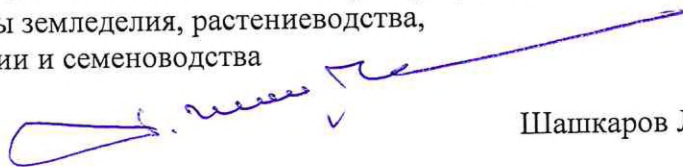 ы земледелия, растениеводства,
ии и семеноводства
Шашкаров Л